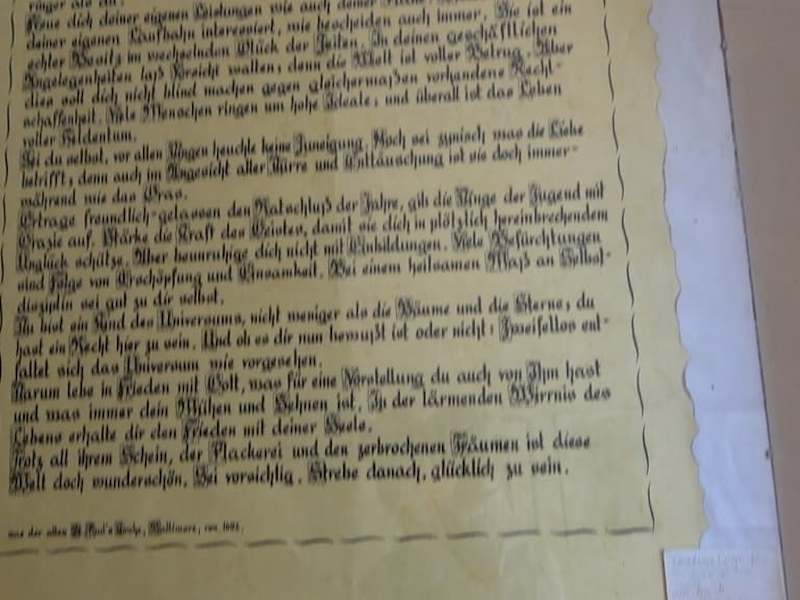 ringer als du.
Freue dich deiner eigenen Leistungen wie auch deiner
deiner eigenen Laufbahn interessiert, wie bescheiden auch immer. Sie ist ein
echter Besitz im wechselnden Glück der Zeiten. In deinen geschäftlichen
Angelegenheiten laß Vorsicht walten; denn die Welt ist voller Betrug. Aber
dies soll dich nicht blind machen gegen gleichermaßen vorhandene Recht-
schaffenheit. Viele Menschen ringen um hohe Ideale; und überall ist das Leben
voller Heldentum.
Sei du selbst, vor allen Dingen heuchle keine Zuneigung. Noch sei zynisch was die Liebe
betrifft; denn auch im Angesicht aller Dürre und Enttäuschung ist sie doch immer-
während wie das Gras.
Ertrage freundlich-gelassen den Ratschluß der Jahre, gib die Dinge der Jugend mit
Grazie auf. Stärke die Kraft des Geistes, damit sie dich in plötzlich hereinbrechendem
Unglück schütze. Aber beunruhige dich nicht mit Einbildungen. Viele Befürchtungen
sind Folge von Erschöpfung und Einsamkeit. Bei einem heilsamen Maß an Selbst-
disziplin sei gut zu dir selbst.
Du bist ein Kind des Universums, nicht weniger als die Bäume und die Sterne; du
hast ein Recht hier zu sein. Und ob es dir nun bewußt ist oder nicht: Zweifellos ent-
faltet sich das Universum wie vorgesehen.
Darum lebe in Frieden mit Gott, was für eine Vorstellung du auch von Ihm hast
und was immer dein Mühen und Sehnen ist. In der lärmenden Wirrnis des
Lebens erhalte dir den Frieden mit deiner Seele.
Trotz all ihrem Schein, der Plackerei und den zerbrochenen Träumen ist diese
Welt doch wunderschön. Sei vorsichtig. Strebe danach, glücklich zu sein.
aus der alten St. Paul's Kirche, Baltimore, von 1692.